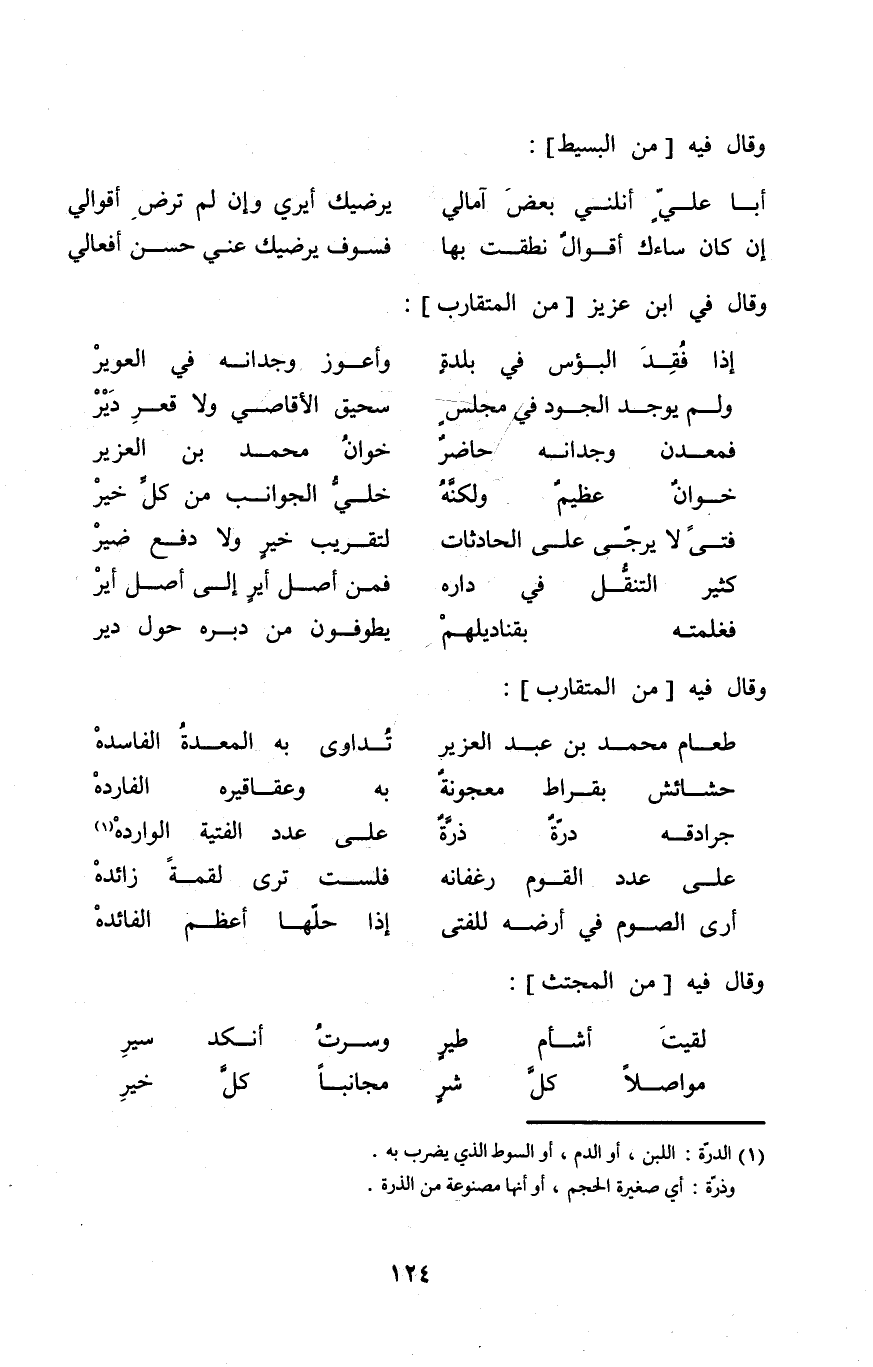 وقال فيه [ من البسيط] :
أبا عليٍّ أنلني بعضَ آمالي يرضيك أيري وإن لم ترضِ أقوالي
إن كان ساءك أقوالٌ نطقت بها فسوف يرضيك عني حسن أفعالي
وقال في ابن عزيز [ من المتقارب ] :
إذا فُقِدَ البؤس في بلدةٍ وأعوز وجدانه في العويرْ
ولم يوجد الجود في مجلسٍ سحيق الأقاصي ولا قعرِ دَيْرْ
فمعدن وجدانه حاضرٌ خوانُ محمد بن العزير
خوانٌ عظيمٌ ولكنَّهُ خليُّ الجوانب من كلِّ خيرْ
فتىً لا يرجّى على الحادثات لتقريب خيرٍ ولا دفع ضيرْ
كثير التنقُّل في داره فمن أصل أيرٍ إلى أصل أيرْ
فغلمته بقناديلهمْ يطوفون من دبره حول دير
وقال فيه [ من المتقارب ] :
طعام محمد بن عبد العزير تُداوى به المعدةُ الفاسدهْ
حشائش بقراط معجونةٌ به وعقاقيره الفاردهْ
جرادقه درّةٌ ذرَّةٌ على عدد الفتية الواردهْ(١)
على عدد القوم رغفانه فلست ترى لقمةً زائدهْ
أرى الصوم في أرضه للفتى إذا حلّها أعظم الفائدهْ
وقال فيه [ من المجتث ] :
لقيتَ أشأم طيرٍ وسرتُ أنكد سيرِ
مواصلاً كلَّ شرٍ مجانباً كلَّ خيرِ
(١) الدرّة : اللبن ، أو الدم ، أو السوط الذي يضرب به .
وذرّة : أي صغيرة الحجم ، أو أنها مصنوعة من الذرة .
١٢٤